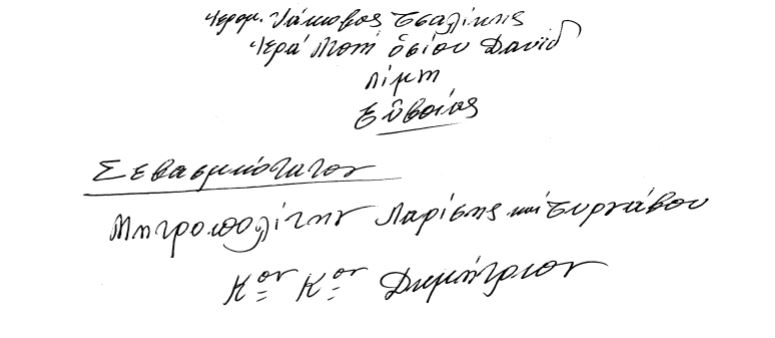 Ἱερομ. Ἰάκωβος Τσαλίκης
Ἱερά Μονή ὁσίου Δαυΐδ
Λίμνη
Εὐβοίας
Σεβασμιότατον
Μητροπολίτην Λαρίσης καί Τυρνάβου
Κον Κον Δημήτριον